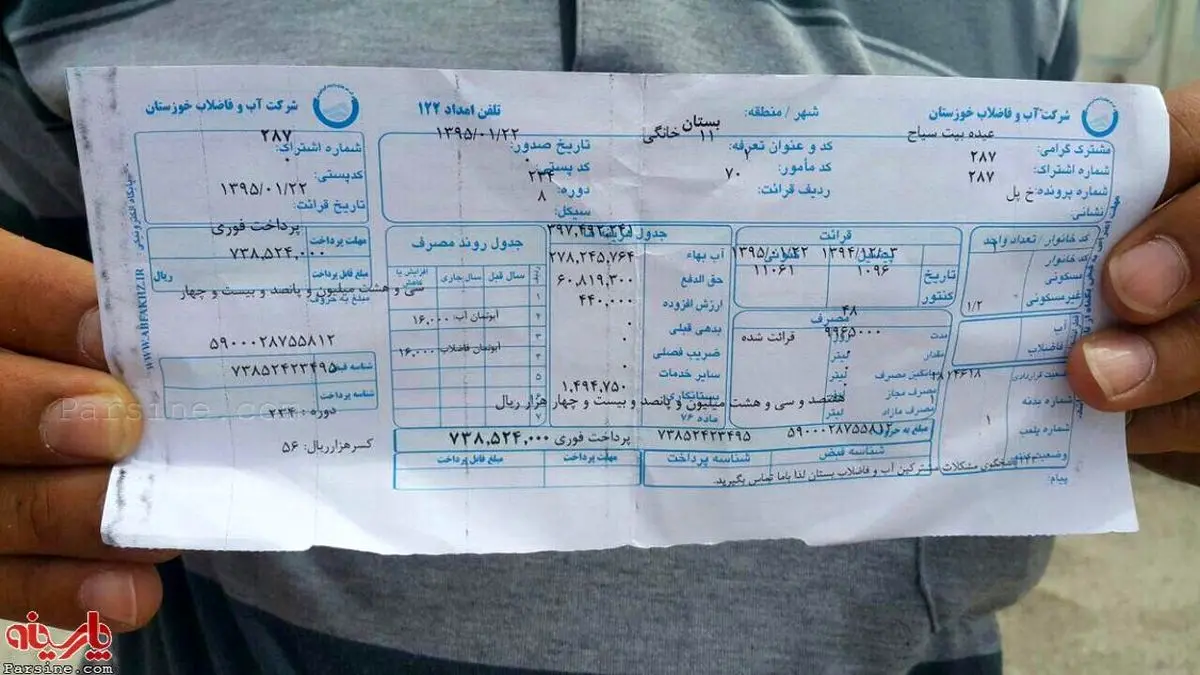 شرکت آب و فاضلاب خوزستان
مشترک گرامی:
عبده بیت سیاح
شماره اشتراک:
۲۸۷
شماره پرونده:
۲۸۷
نشانی:
خ پل
شهر / منطقه:
بستان
کد و عنوان تعرفه:
۱۱ خانگی
کد مأمور:
۲
ردیف قرائت:
۷۰
تلفن امداد ۱۲۲
تاریخ صدور:
۱۳۹۵/۰۱/۲۲
کد پستی:
۰
دوره:
۲۳۴
سیکل:
۸
کد خانوار / تعداد واحد
کد خانوار
مسکونی
غیرمسکونی
۱/۲
آب
فاضلاب
شماره بدنه
شماره پلمب
۱
وضعیت
پیام:
قرائت
تاریخ
۱۳۹۵/۰۱/۲۲
کنتور
۱۰۹۶
۱۱۰۶۱
مصرف
مدت
۴۸
روز
مقدار
۹۹۶۵۰۰۰
لیتر
قرائت شده
میانگین مصرف
لیتر
مصرف مجاز
مصرف مازاد
لیتر
جدول هزینه
آب بهاء
۳۹۷,۴۹۲,۲۴۱
حق الدفع
۲۷۸,۲۴۵,۷۶۴
ارزش افزوده
۶۰,۸۱۹,۳۰۰
بدهی قبلی
۴۴۰,۰۰۰
ضریب فصلی
۰
سایر خدمات
۰
بستانکاری
ماده ۷۶
۱,۴۹۴,۷۵۰
هفتصد و سی و هشت میلیون و پانصد و بیست و چهار هزار ریال
جدول روند مصرف
سال قبل
سال جاری
افزایش یا کاهش
آبونمان آب: ۱۶,۰۰۰
آبونمان فاضلاب: ۱۶,۰۰۰
مبلغ به حروف
شناسه قبض
۵۹۰۰۰۲۸۷۵۵۸۱۲
شناسه پرداخت
۷۳۸۵۲۴۲۳۴۹۵
پرداخت فوری
۷۳۸,۵۲۴,۰۰۰
مهلت پرداخت
مبلغ قابل پرداخت
پاسخگوی مشکلات مشترکین آب و فاضلاب بستان لذا باما تماس بگیرید.
شرکت آب و فاضلاب خوزستان
شماره اشتراک:
۲۸۷
کدپستی:
۰
تاریخ قرائت:
۱۳۹۵/۰۱/۲۲
مهلت پرداخت
پرداخت فوری
مبلغ قابل پرداخت
۷۳۸,۵۲۴,۰۰۰
ریال
مبلغ به حروف
سی و هشت میلیون و پانصد و بیست و چهار
۵۹۰۰۰۲۸۷۵۵۸۱۲
شناسه قبض
۷۳۸۵۲۴۲۳۴۹۵
دوره : ۲۳۴
کسرهزارریال: ۵۶
پایگاه الکترونیکی: WWW.ABFAKHZ.IR
Parsine.com
پارسینه
Parsine.com